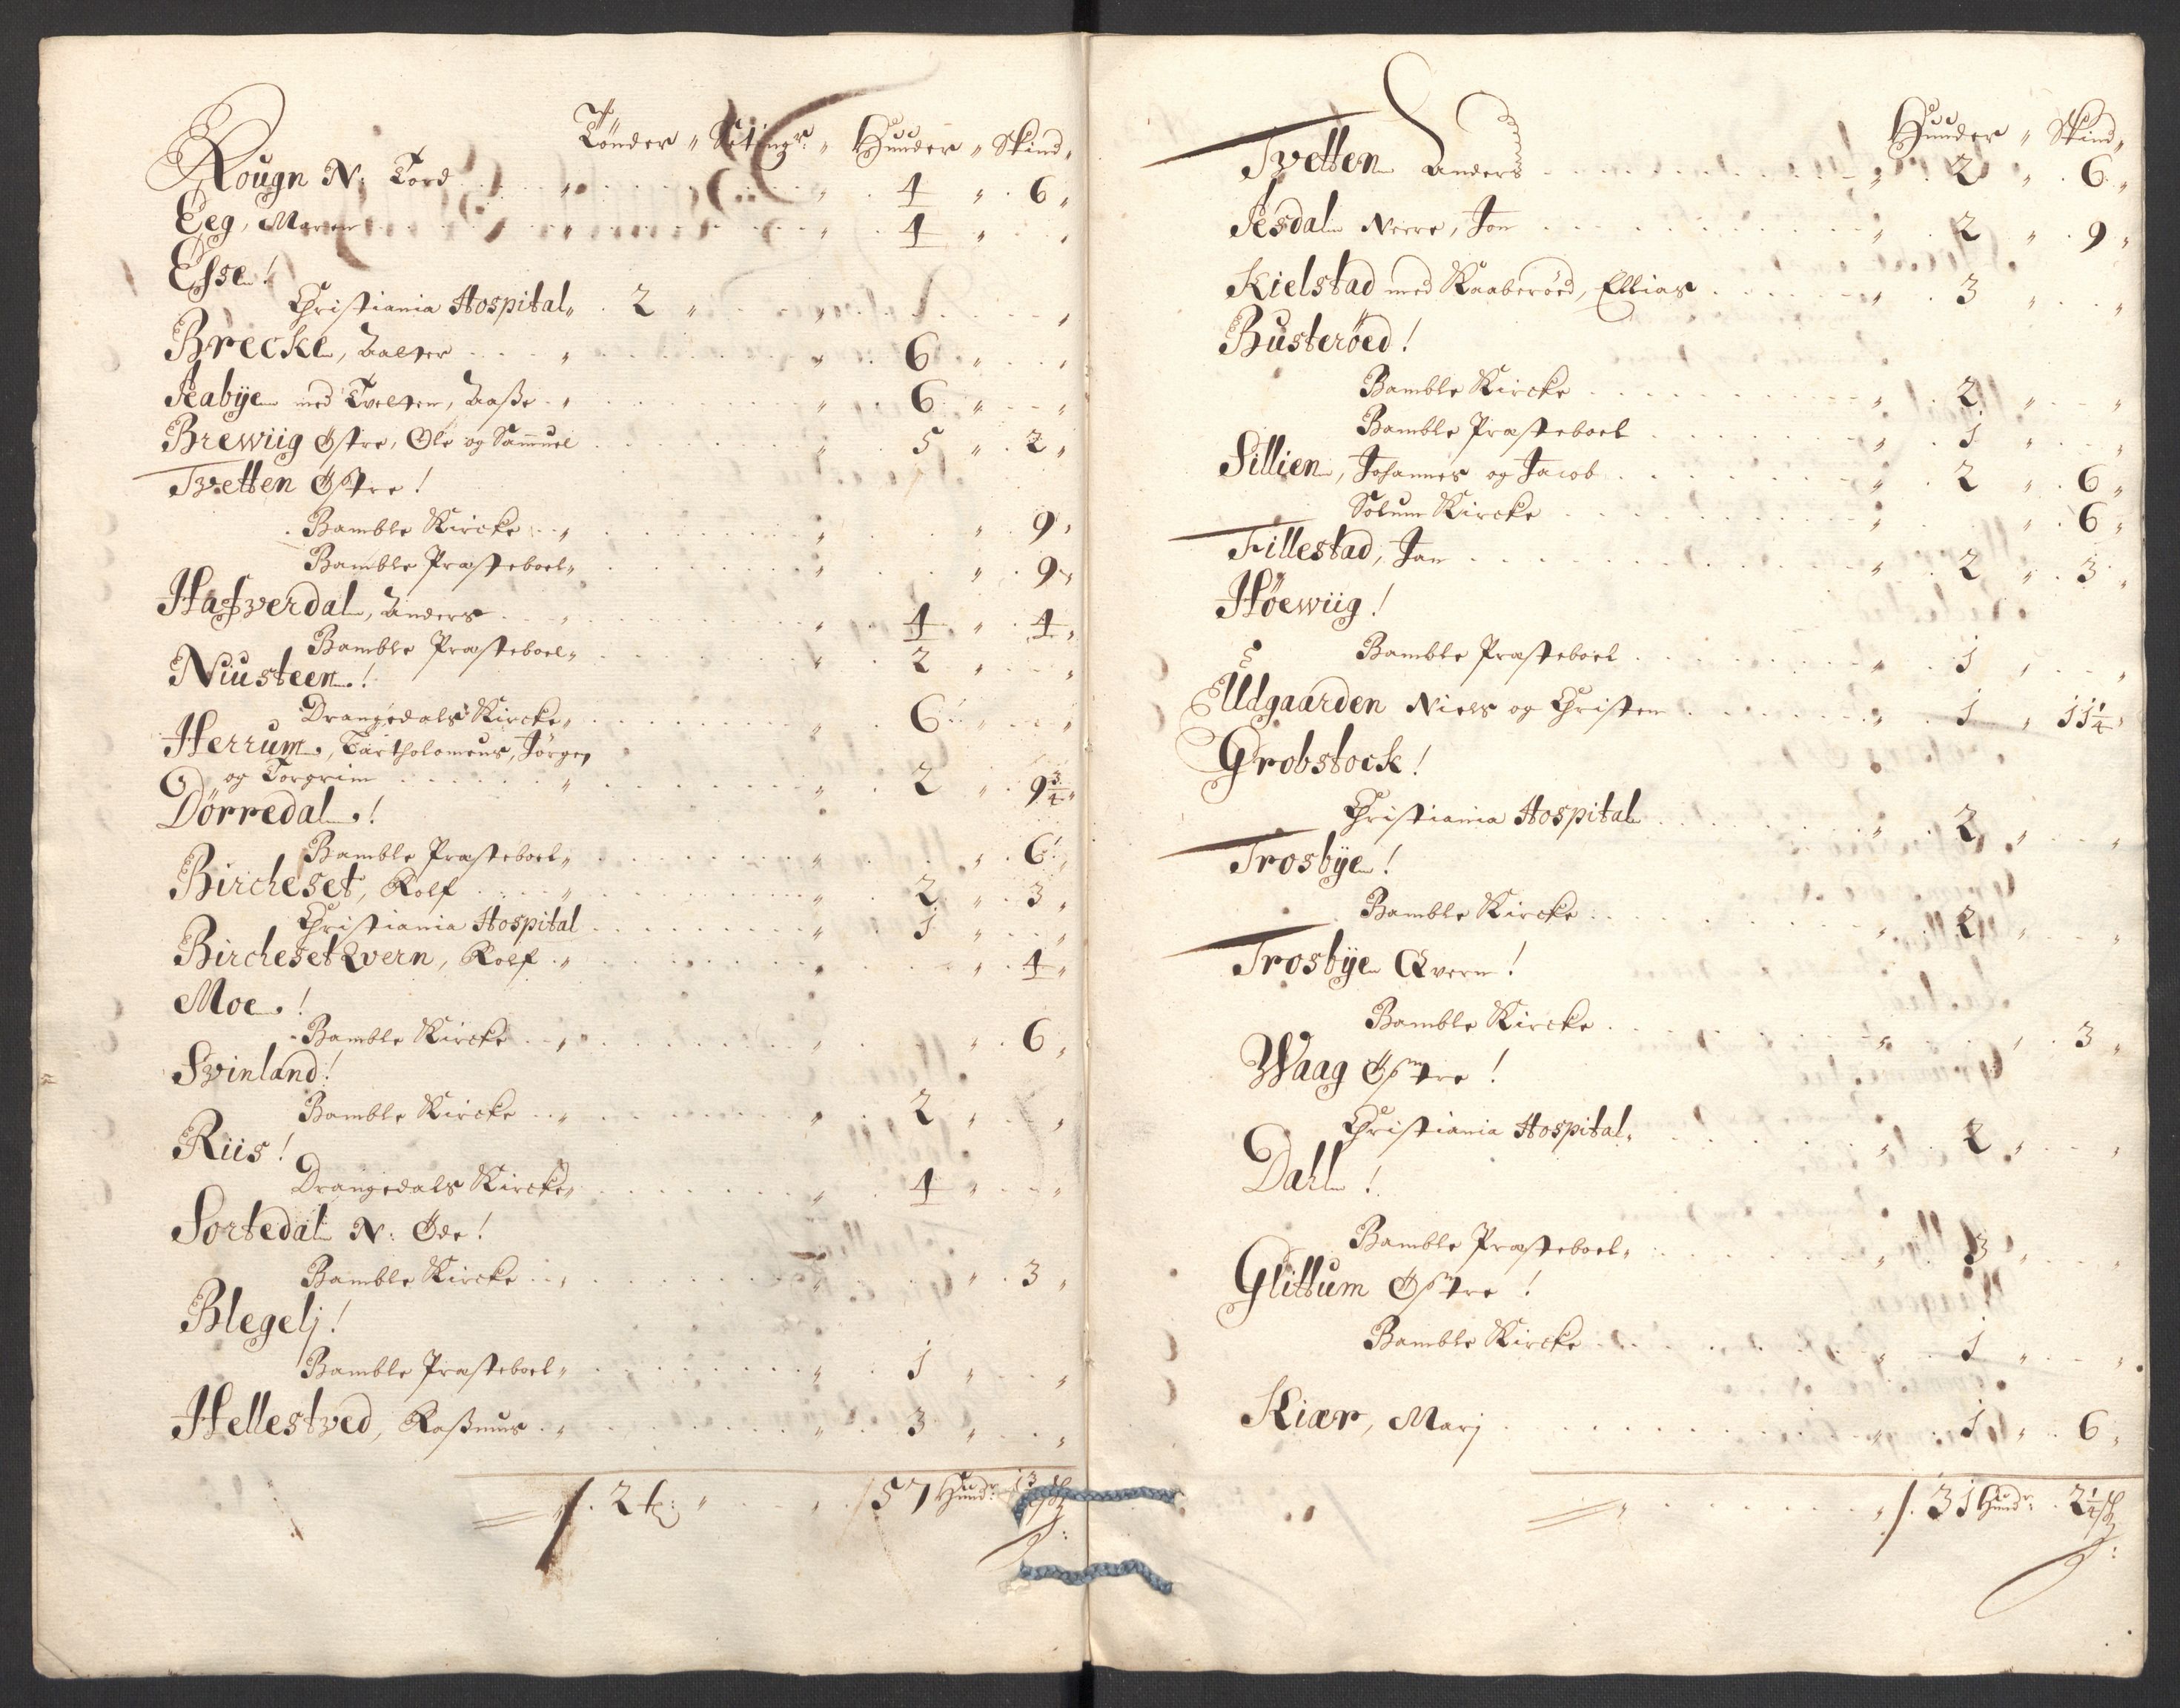 Tønder " Setingr: " Huuder " Skind "
Rougn N: Tord . . . " . . . " . 4 " . 6 "
Eeg, Maren . . . " . . . " . 4 " . . "
Esse!
Christiania Hospital " . 2 " . . " . . . . "
Brecke, Halvor . . . " . . . " . 6 " . . "
Aabye med Tvelten, Aasse . " . . . " . 6 " . . "
Brewiig Østre, Ole og Sammuel . . . " . 5 " . 2 "
Tvetten Østre!
Bamble Kircke . . " . . . " . . " . 9 "
Bamble Præsteboel " . . . " . . " . 9 "
Hafverdal, Anders . . . " . . . " . 4 " . 4 "
Bamble Præsteboel " . . . " . 2 " . . "
Niusteen!
Drangedals Kircke " . . . " . 6 " . . "
Herrum, Bartholomeus, Jørgen
og Torgrim . . . " . . . " . 2 " . 9 3/4 "
Dørredal!
Bamble Præsteboel " . . . " . . " . 6 "
Bircheset, Rolf . . . " . . . " . 2 " . 3 "
Christiania Hospital . . . " . 1 " . . "
Bircheset Qvern, Rolf . " . . . " . . " . 4 "
Moe!
Bamble Kircke . . " . . . " . . " . 6 "
Svinland!
Bamble Kircke . . " . . . " . 2 " . . "
Riis!
Drangedals Kircke " . . . " . 4 " . . "
Sortedal N: Øde!
Bamble Kircke . . " . . . " . . " . 3 "
Blegelj!
Bamble Præsteboel " . . . " . 1 " . . "
Hellestved, Rassmus . " . . . " . 3 " . . "
/. 2 t: " . . " . /57 Hundr:
Huuder " Skind "
Tvetten Anders . . . " . 2 " . 6 "
Aesdal Neere, Jon . . . " . 2 " . 9 "
Kielstad med Raaberøed, Ellias . . . " . 3 " . . "
Busterøed!
Bamble Kircke . . . " . 2 " . . "
Bamble Præsteboel . . . " . 1 " . . "
Sillien, Johannes og Jacob . . . " . 2 " . 6 "
Solum Kircke . . . " . . " . 6 "
Fillestad, Jan . . . " . 2 " . 3 "
Høewiig!
Bamble Præsteboel . . . " . 1 " . . "
Udgaarden Niels og Christen . . . " . 1 " 11 1/4 "
Grobstock!
Christiania Hospital . . . " . 2 " . . "
Trosbye!
Bamble Kircke . . . " . 2 " . . "
Trosbye Qvern!
Bamble Kircke . . . " . . " . 3 "
Waag Østre!
Christiania Hospital " . . . " . 2 " . . "
Dahl!
Bamble Præsteboel " . . . " . 3 " . . "
Glittum Østre!
Bamble Kircke . . . " . 1 " . . "
Kiær, Marj . . . " . 1 " . 6 "
" . . . " /. 31 Hundr: . 2 1/4 sk: